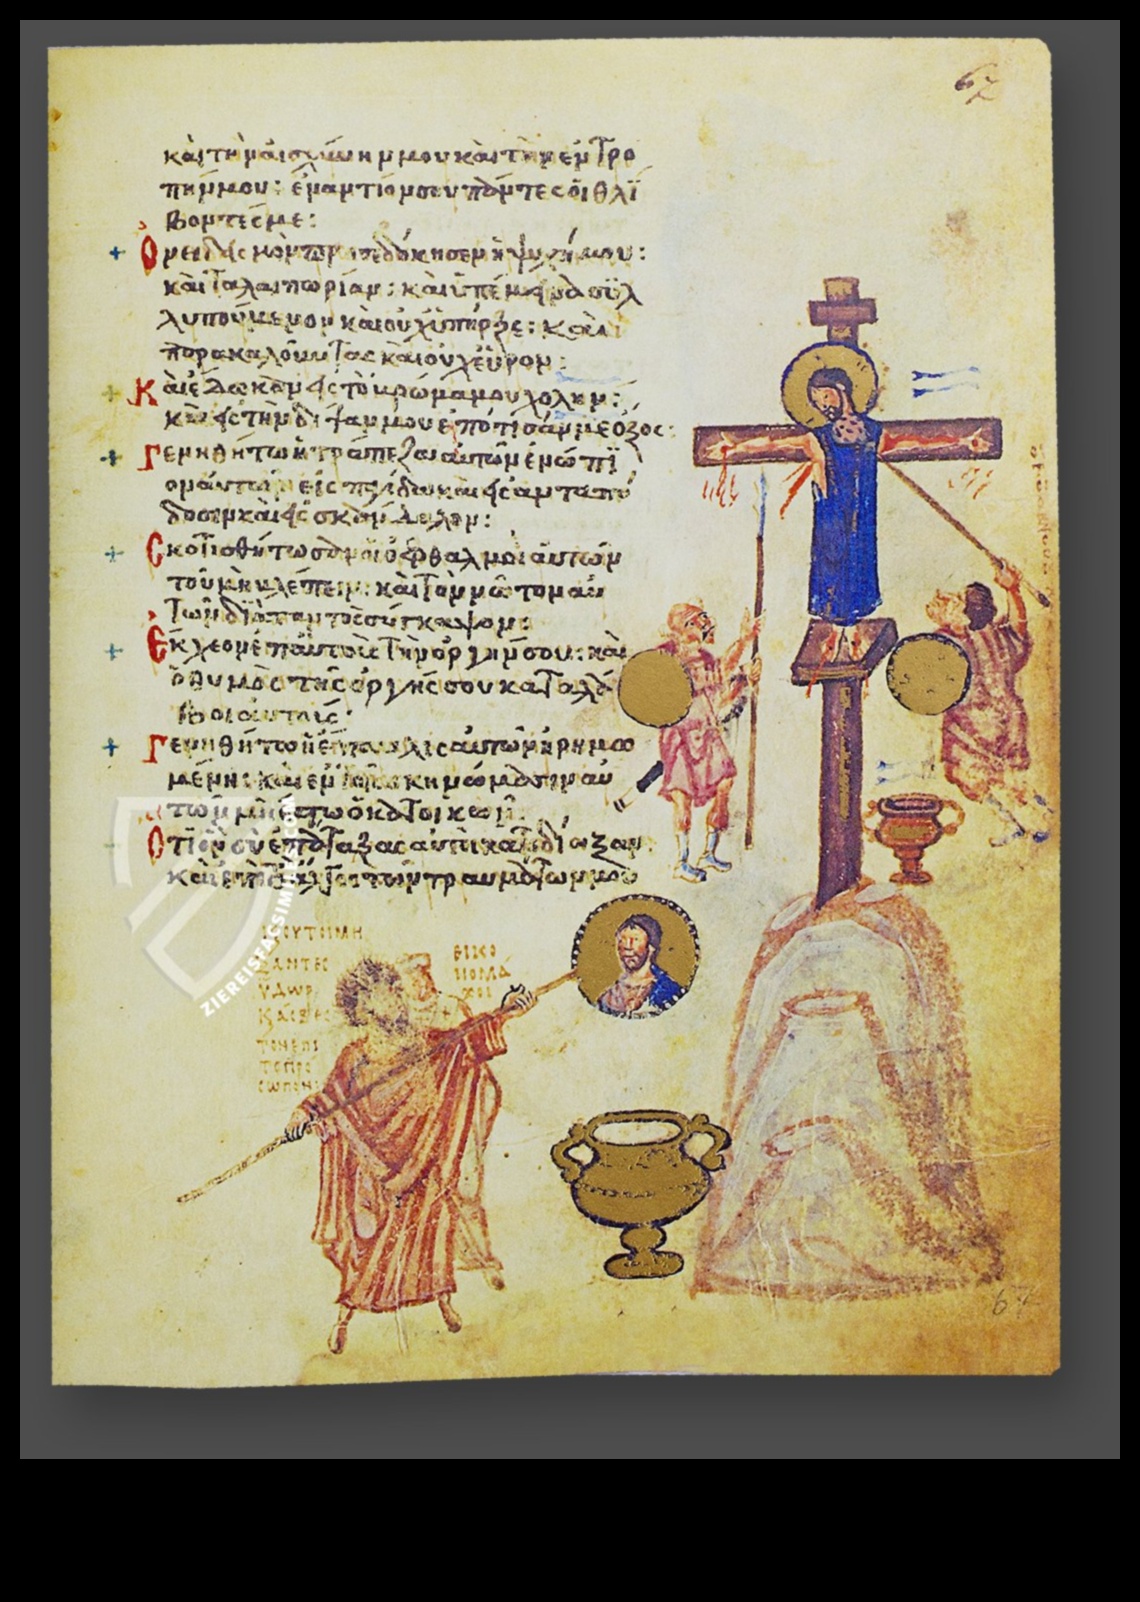 67
καὶ τὴν αἰσχύνην μου καὶ τὴν ἐντρο
πήν μου: ἐναντίον σου πάντες οἱ θλί
βοντές με:
+ Ὀνειδισμὸν προσεδόκησεν ἡ ψυχή μου:
καὶ ταλαιπωρίαν: καὶ ὑπέμεινα συλ
λυπούμενον καὶ οὐχ ὑπῆρξε: καὶ
παρακαλοῦντας καὶ οὐχ εὗρον:
+ Καὶ ἔδωκαν εἰς τὸ βρῶμα μου χολήν:
καὶ εἰς τὴν δίψαν μου ἐπότισάν με ὄξος:
+ Γενηθήτω ἡ τράπεζα αὐτῶν ἐνώπι
ον αὐτῶν εἰς παγίδα καὶ εἰς ἀνταπό
δοσιν καὶ εἰς σκάνδαλον:
+ Σκοτισθήτωσαν οἱ ὀφθαλμοὶ αὐτῶν
τοῦ μὴ βλέπειν: καὶ τὸν νῶτον αὐ
τῶν διὰ παντὸς σύγκαμψον:
+ Ἔκχεον ἐπ αὐτοὺς τὴν ὀργήν σου: καὶ
ὁ θυμὸς τῆς ὀργῆς σου καταλά
βοι αὐτούς:
+ Γενηθήτω ἡ ἔπαυλις αὐτῶν ἠρημω
μένη: καὶ ἐν τοῖς σκηνώμασιν αὐ
τῶν μὴ ἔστω ὁ κατοικῶν:
Ὅτι ὃν σὺ ἐπάταξας αὐτοὶ κατεδίωξαν
καὶ ἐπὶ τὸ ἄλγος τῶν τραυμάτων μου
ΥΔΩΡ
ΕΙΚΟ
ΝΟΜΑ
ΧΟΙ
ZIEREISFACSIMILES.COM
67